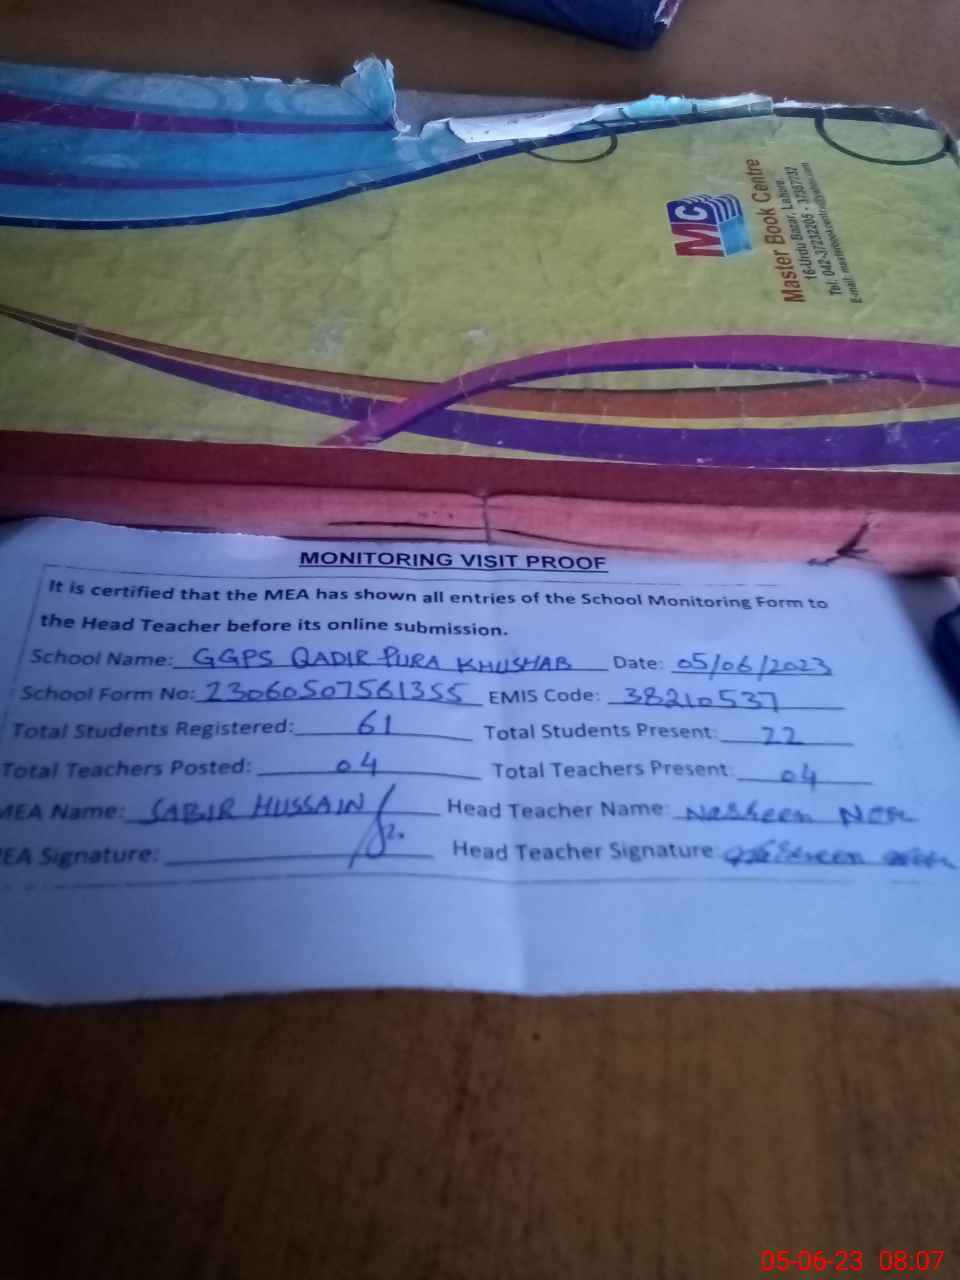 MC
Master Book Centre
16-Urdu Bazar, Lahore
Tel: 042-37232205 - 37367732
E-mail:
MONITORING VISIT PROOF
It is certified that the MEA has shown all entries of the School Monitoring Form to
the Head Teacher before its online submission.
School Name: GGPS QADIR PURA KHUSHAB Date: 05/06/2023
School Form No: 23060507561355 EMIS Code: 38210537
Total Students Registered: 61 Total Students Present: 22
Total Teachers Posted: 04 Total Teachers Present: 04
MEA Name: SABIR HUSSAIN Head Teacher Name: Nasreen
EA Signature: Head Teacher Signature:
05-06-23 08:07